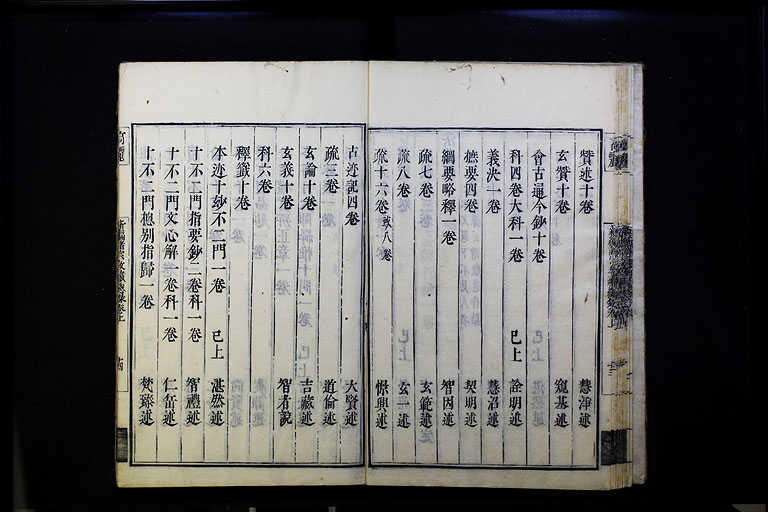 贊述十卷 慧淨述
玄贊十卷 窺基述
會古通今鈔十卷
科四卷大科一卷 已上 詮明述
義決一卷 慧沼述
攝要四卷 契明述
綱要略釋一卷 智因述
疏七卷 玄範述
疏八卷 玄一述
疏十六卷或八卷 憬興述
古迹記四卷 大賢述
疏三卷 道倫述
玄論十卷 吉藏述
玄義十卷 智者說
科六卷
釋籤十卷
本迹十妙不二門一卷 已上 湛然述
十不二門指要鈔二卷科一卷 智禮述
十不二門文心解一卷科一卷 仁岳述
十不二門總別指歸一卷 梵臻述
高麗 新編諸宗教藏總錄卷上